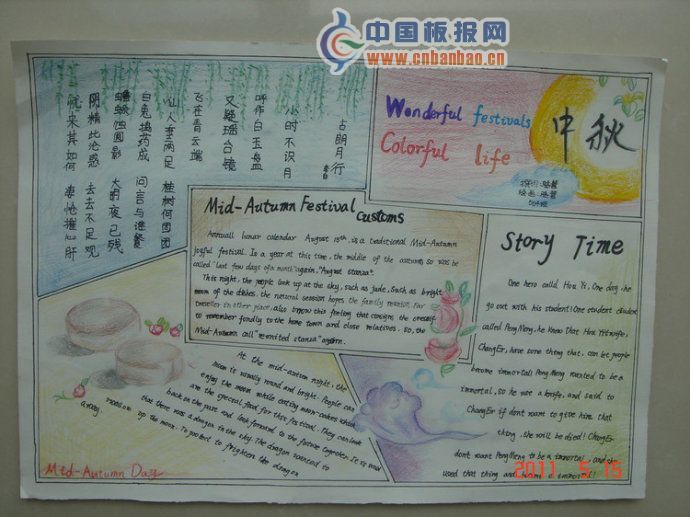 中国板报网
www.cnbanbao.cn
古朗月行
李白
小时不识月
呼作白玉盘
又疑瑶台镜
飞在青云端
仙人垂两足 桂树何团团
白兔捣药成 问言与谁餐
蟾蜍蚀圆影 大明夜已残
阴精此沦惑 去去不足观
忧来其如何 凄怆摧心肝
Wonderful festivals
Colorful life
中秋
Mid-Autumn Festival Customs
Annual lunar calendar August 15th, is a traditional Mid-Autumn
joyful festival. In a year at this time, the middle of the autumn, so was be
called "last few days of a month" again, "August stanza".
This night, the people look up at the sky, such as jade, Such as bright
moon of the dishes, the natural session hopes the family reunion. Far
traveller in other place, also borrow this feeling that consigns the oneself
to remember fondly to the home town and close relatives. So, the
Mid-Autumn call "reunited stanza" again.
Story Time
One hero called Hou Yi, One day, he
go out with his student! One student student
called PengMeng, he know that Hou Yi wife,
ChangEr, have some thing that can let people
become immortal! PengMeng wanted to be a
immortal, so he use a knife, and said to
ChangEr if don't want to give him that
thing, she will be died! ChangEr
don't want PengMeng to be a immortal, and
used that thing and immortal!
At the mid-autumn night, the
moon is usually round and bright. People can
enjoy the moon while eating moon-cakes which
are the special food for this festival. They can look
back on the past and look forward to the future together. It is said
that there was a dragon in the sky. The dragon wanted to
swallow up the moon. To protect to frighten the dragon
away.
Mid-Autumn Day
2011 5 15